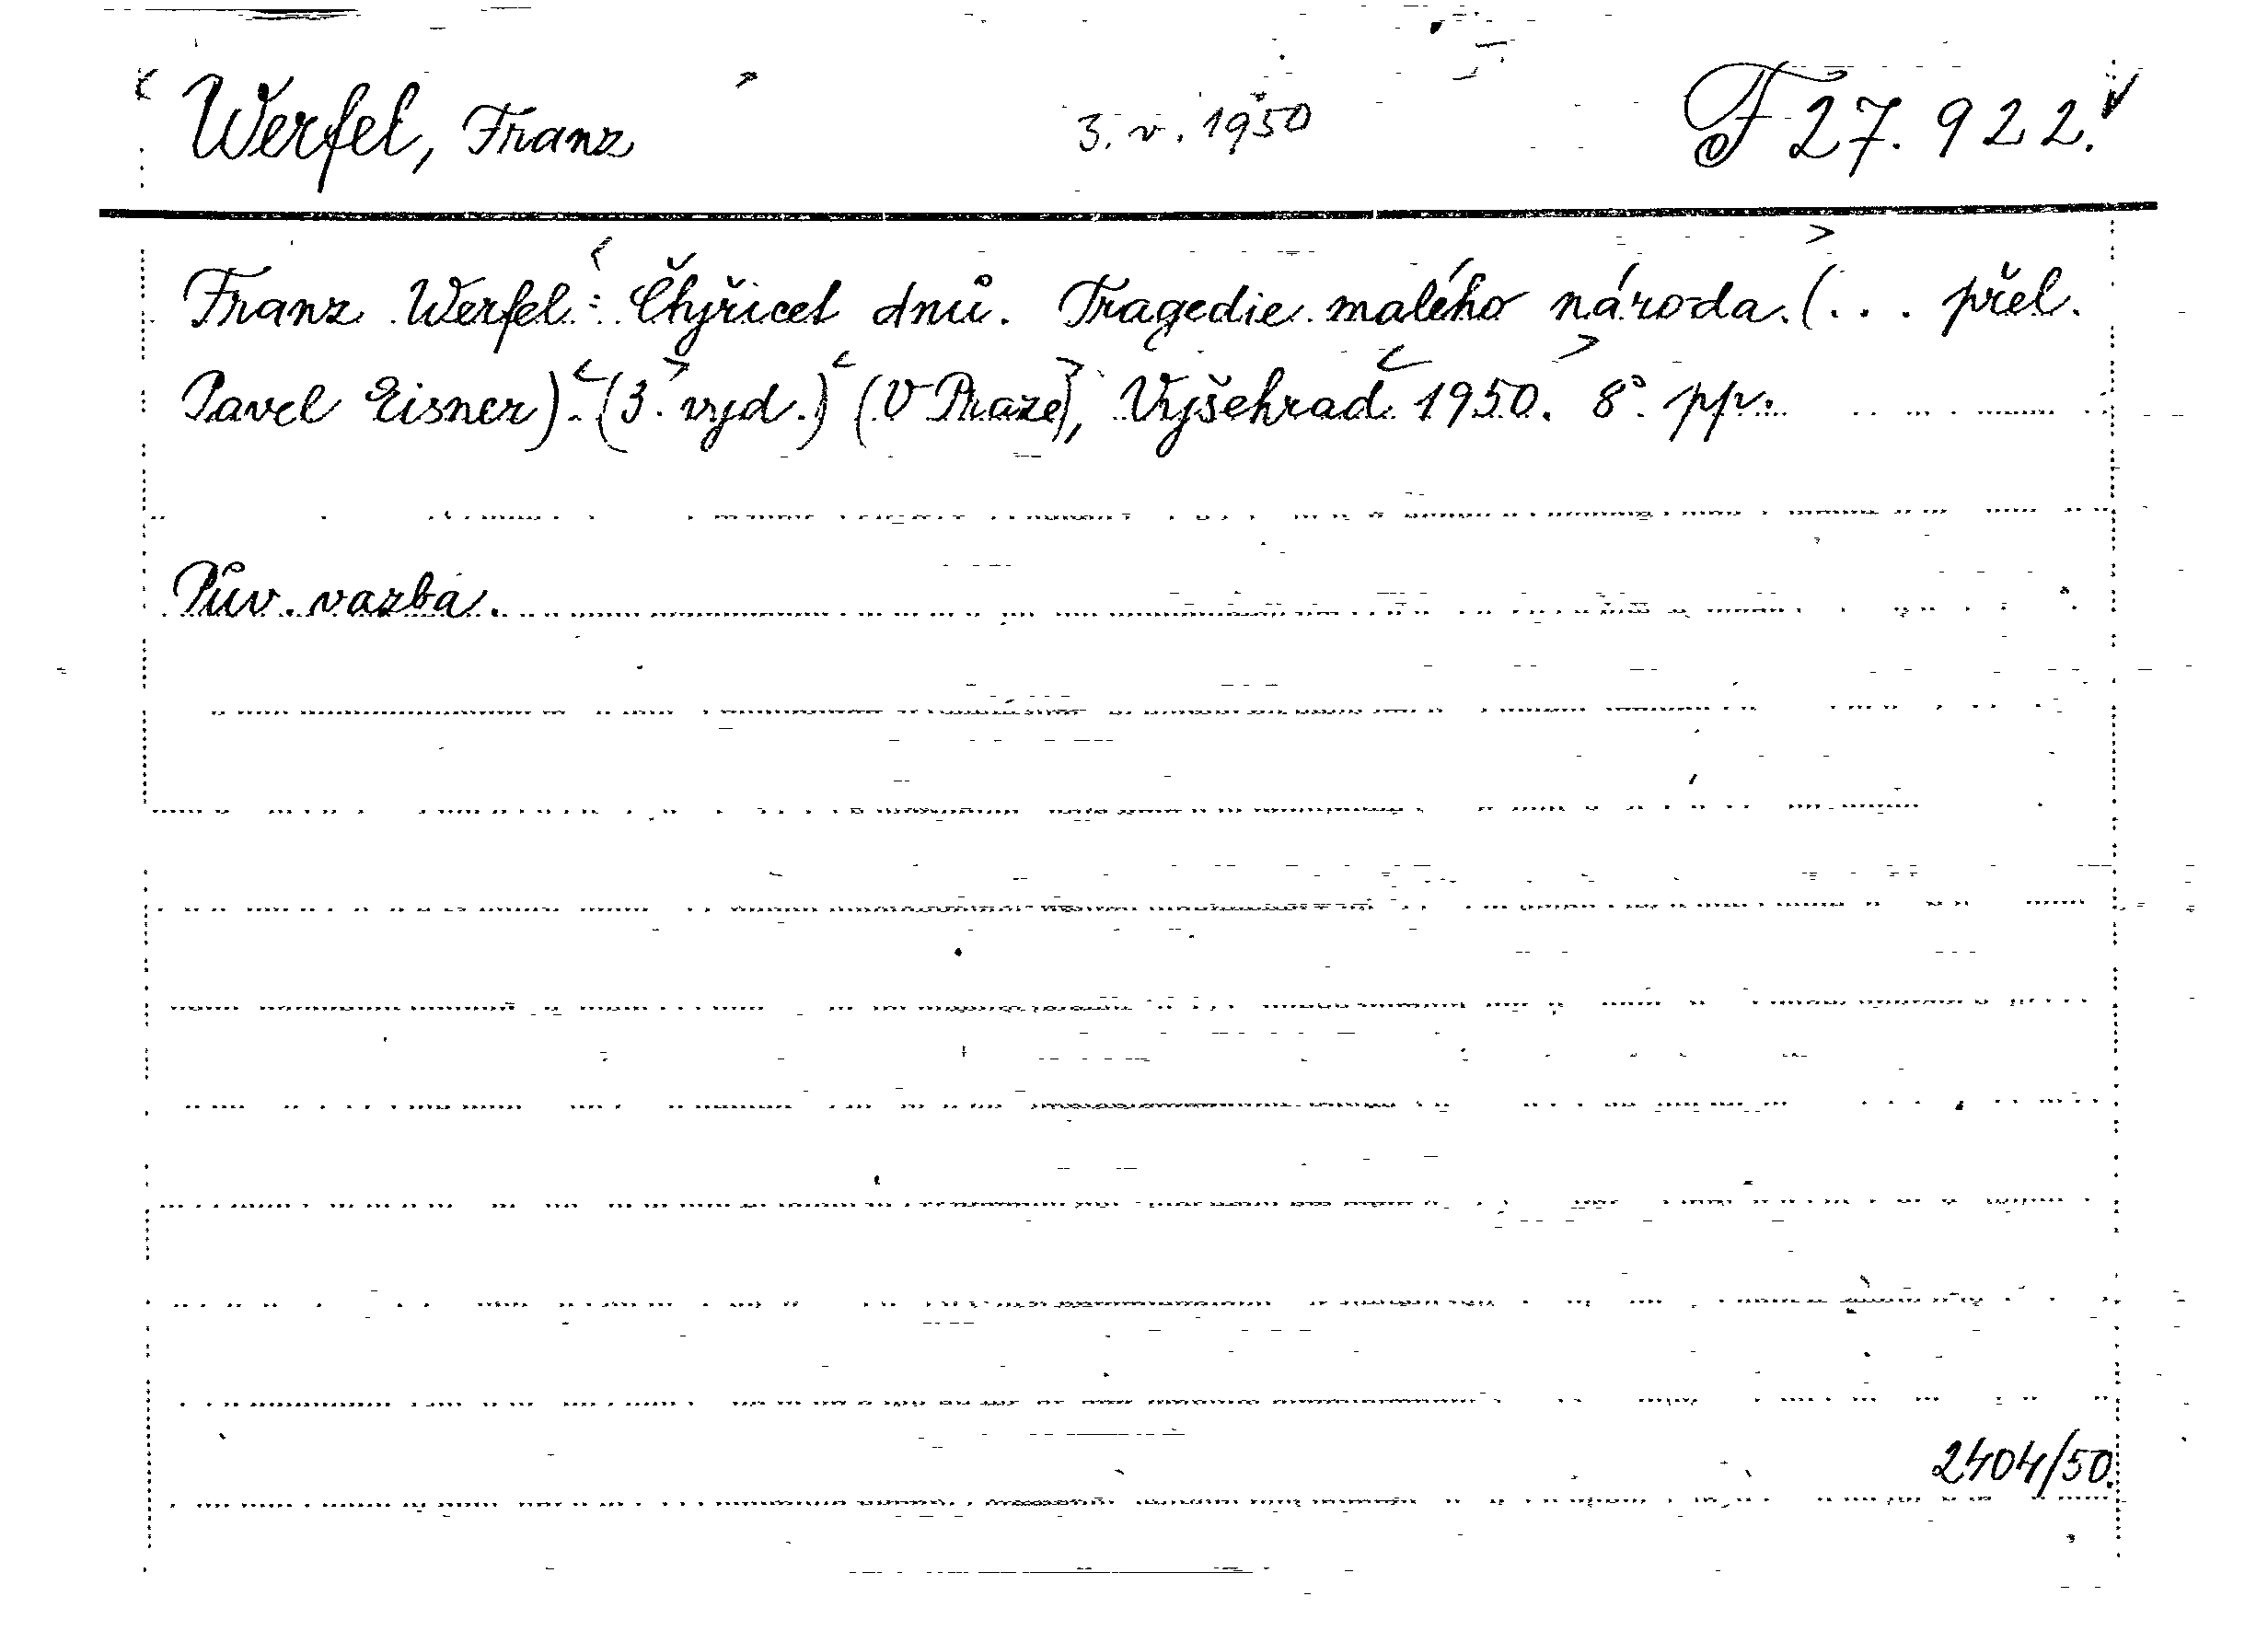 Werfel, Franz 3. v. 1950 F 27.922.
Franz Werfel: Čtyřicet dnů. Tragedie malého národa. (... přel.
Pavel Eisner). (3. vyd.) (V Praze), Vyšehrad 1950. 8° pp.
Pův. vazba.
2404/50.